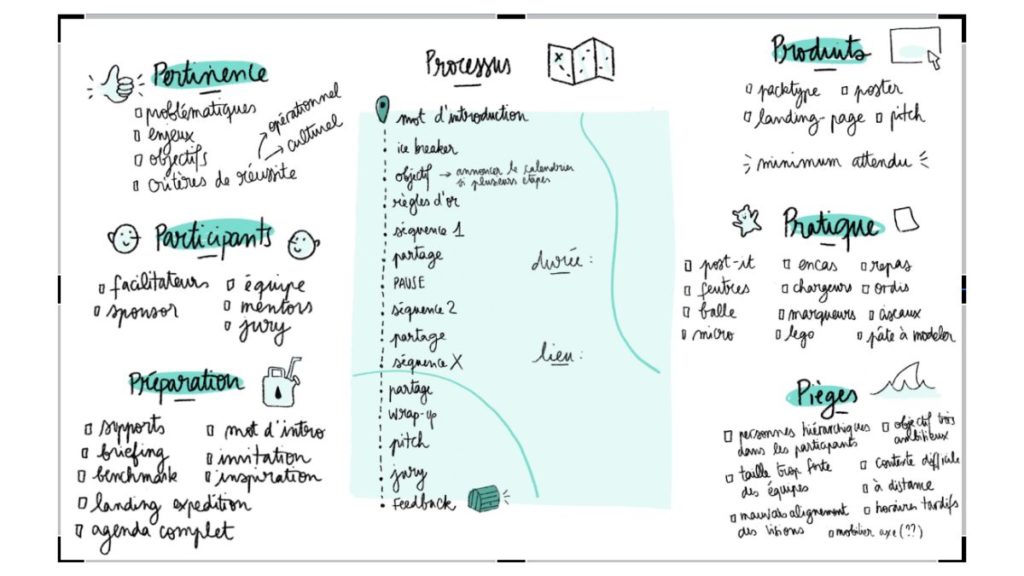 Pertinence
problématiques
enjeux
objectifs
critères de réussite
opérationnel
culturel
Participants
facilitateurs
sponsor
équipe
mentors
jury
Préparation
supports
briefing
benchmark
landing expedition
agenda complet
mot d'intro
invitation
inspiration
Processus
mot d'introduction
ice breaker
objectif → annoncer le calendrier
si plusieurs étapes
règles d'or
séquence 1
partage
PAUSE
séquence 2
partage
séquence X
partage
wrap-up
pitch
jury
Feedback
durée :
lieu :
Produits
packtype
poster
landing-page
pitch
minimum attendu
Pratique
post-it
feutres
balle
micro
encas
chargeurs
marqueurs
lego
repas
ordis
ciseaux
pâte à modeler
Pièges
personnes hiérarchiques
dans les participants
taille trop forte
des équipes
mauvais alignement
des visions
objectif très
ambitieux
contexte difficile
à distance
horaires tardifs
mobilier axe (??)